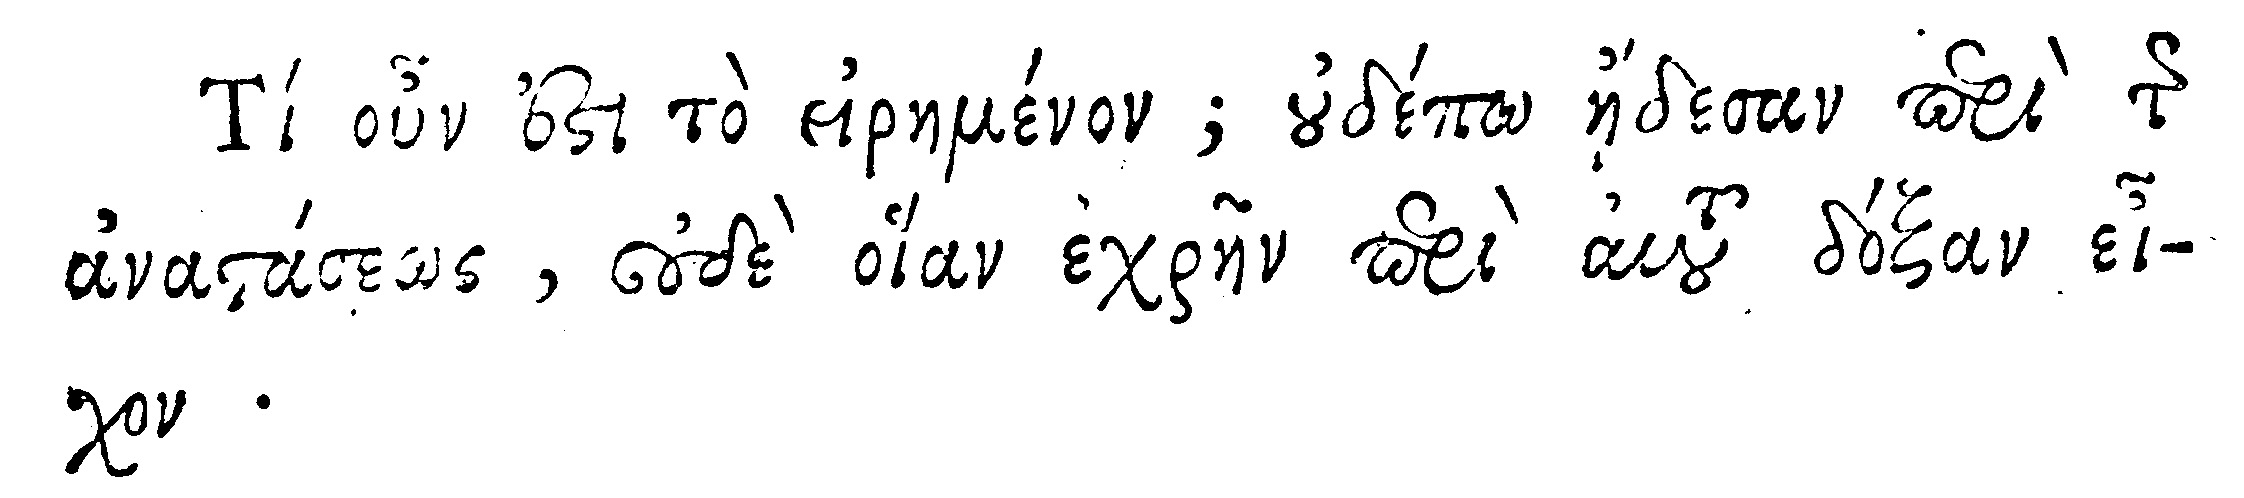 Τί οὖν ἐστι τὸ εἰρημένον; οὐδέπω ᾔδεσαν περὶ τῆς
ἀναστάσεως, οὐδὲ οἵαν ἐχρῆν περὶ αὐτοῦ δόξαν εἶ-
χον.